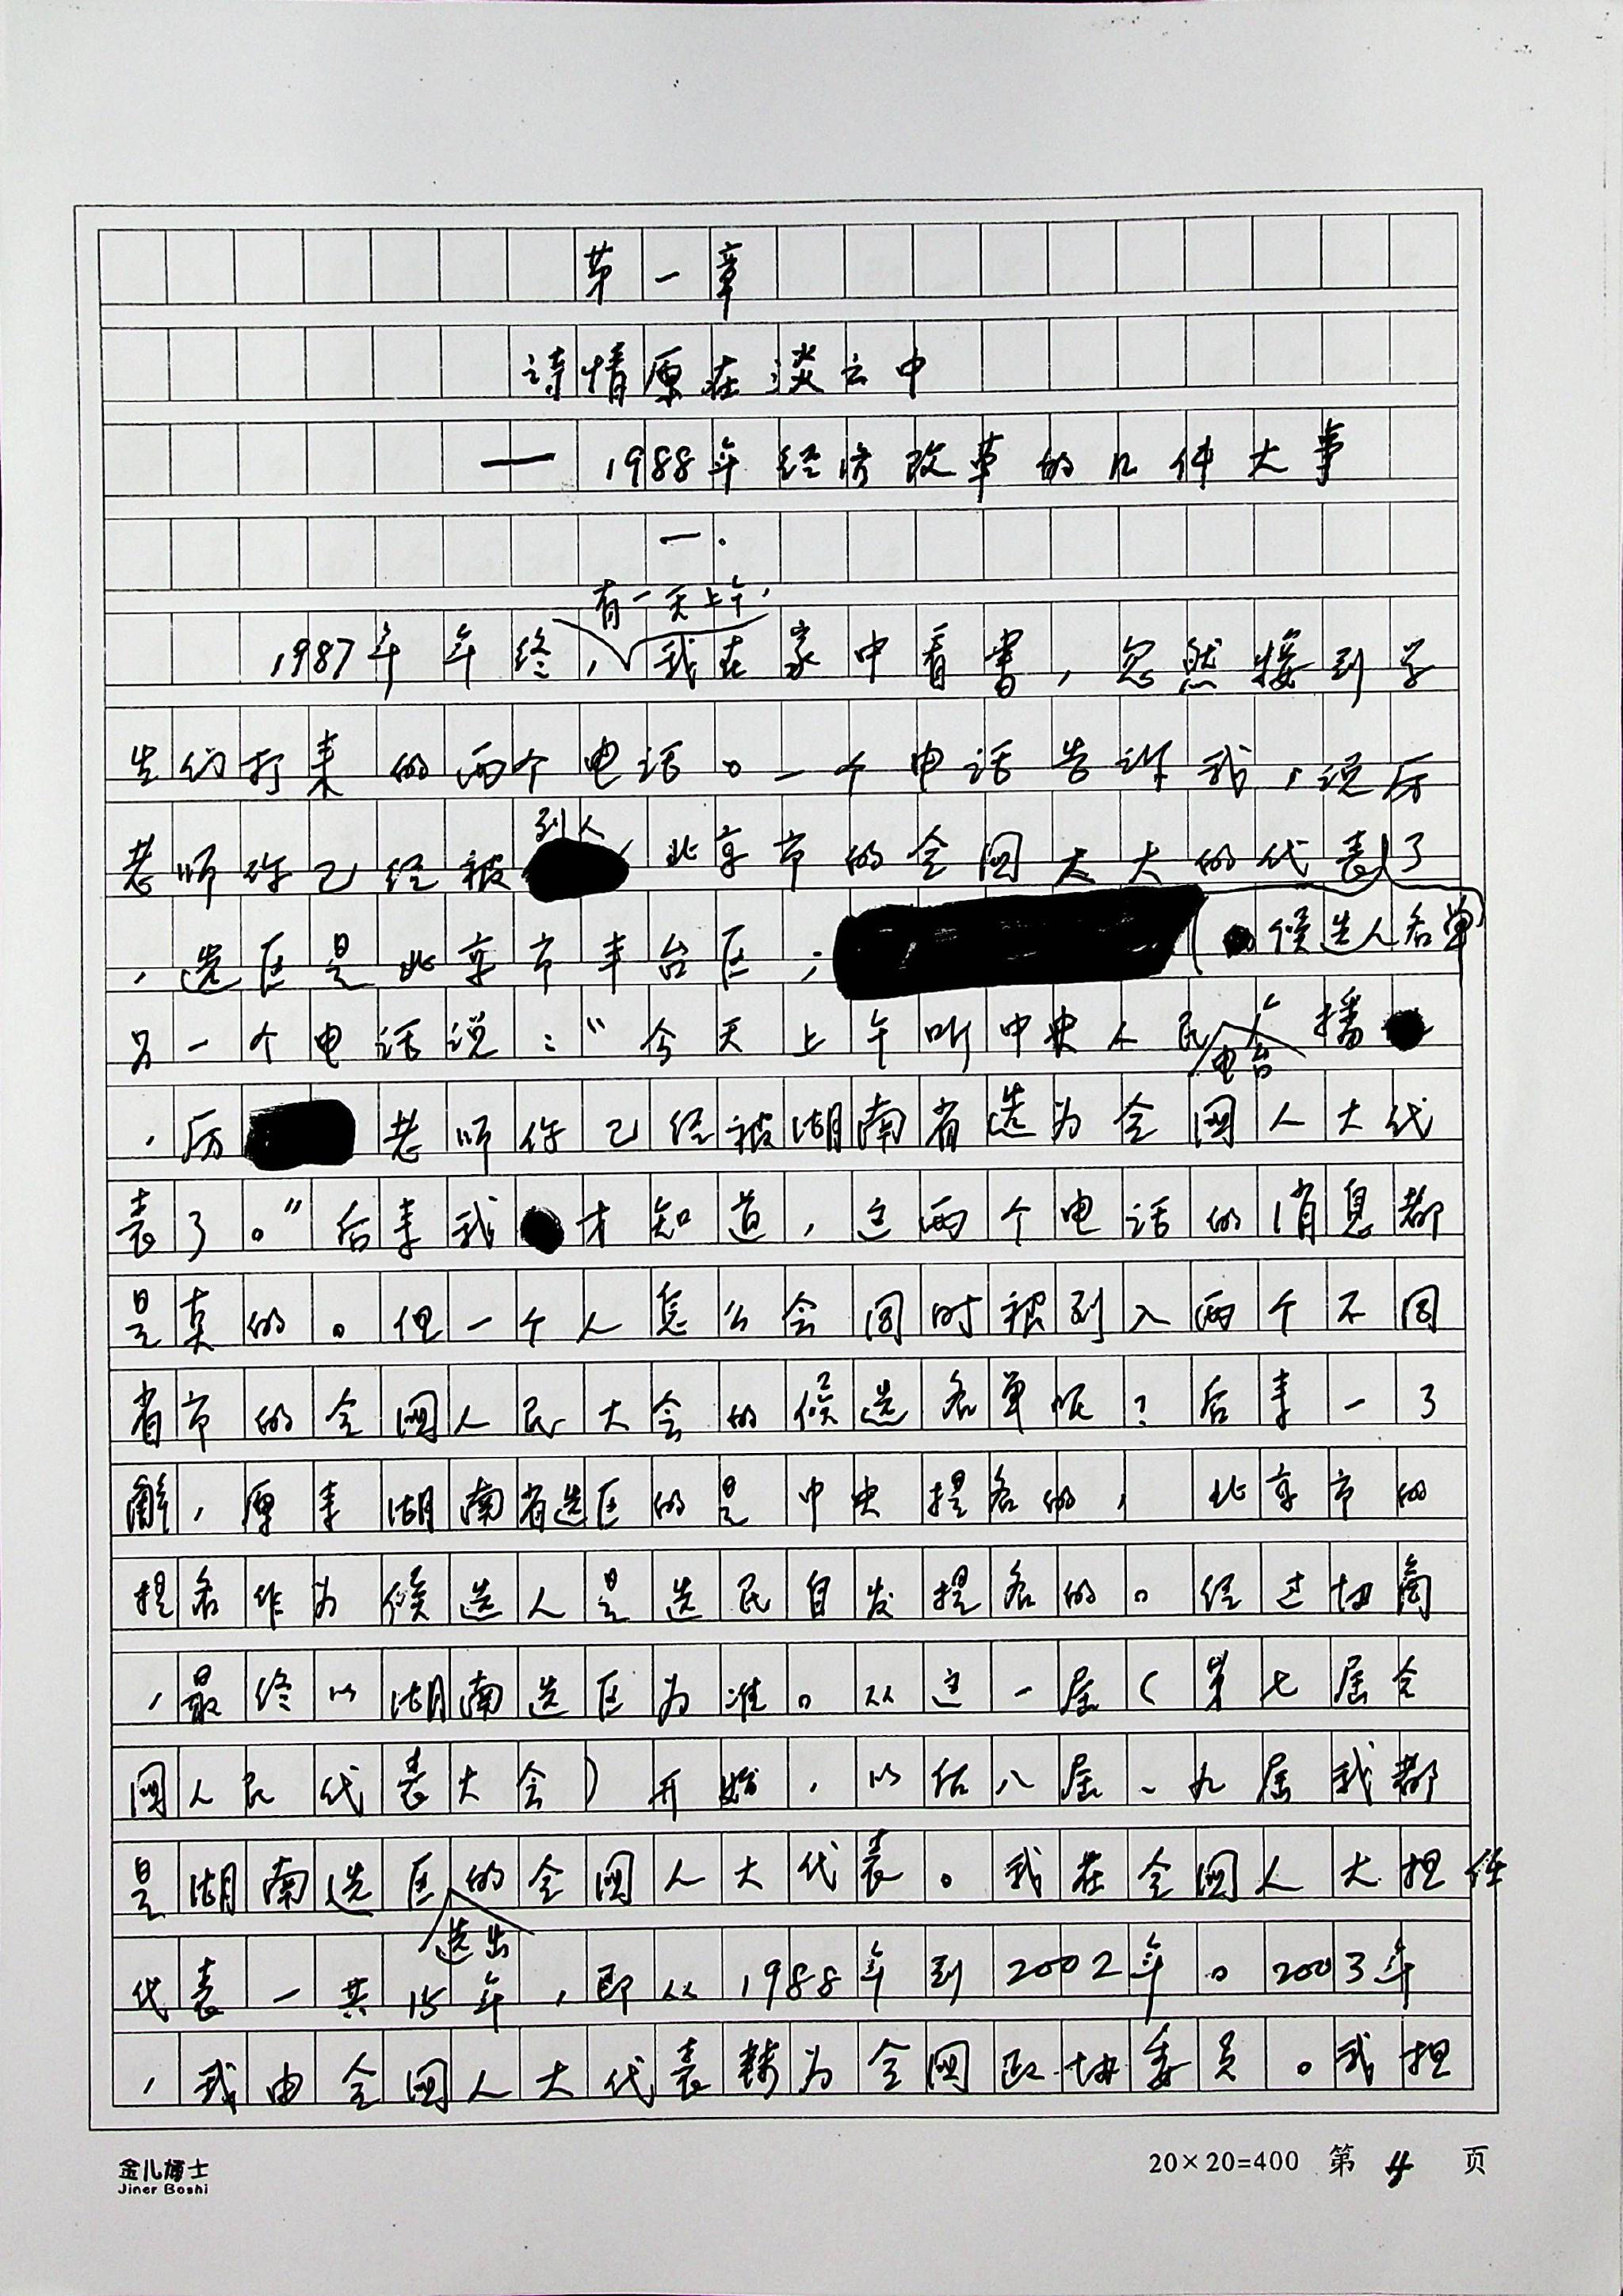 第一章
诗情原在淡云中
——1988年经济改革的几件大事
一.
有一天上午，
1987年年终，我在家中看书，忽然接到学
生们打来的两个电话。一个电话告诉我，说厉
列入
老师你已经被北京市的全国人大的代表了
，选区是北京市丰台区；候选人名单
另一个电话说：“今天上午听中央人民广播
电台
，厉老师你已经被湖南省选为全国人大代
表了。”后来我才知道，这两个电话的消息都
是真的。但一个人怎么会同时被列入两个不同
省市的全国人民大会的候选名单呢？后来一了
解，原来湖南省选区的是中央提名的，北京市的
提名作为候选人是选民自发提名的。经过协商
，最终以湖南选区为准。从这一届（第七届全
国人民代表大会）开始，以后八届、九届我都
是湖南选区的全国人大代表。我在全国人大担任
选出
代表一共15年，即从1988年到2002年。2003年
，我由全国人大代表转为全国政协委员。我担
金儿博士
Jiner Boshi
20×20=400 第 4 页